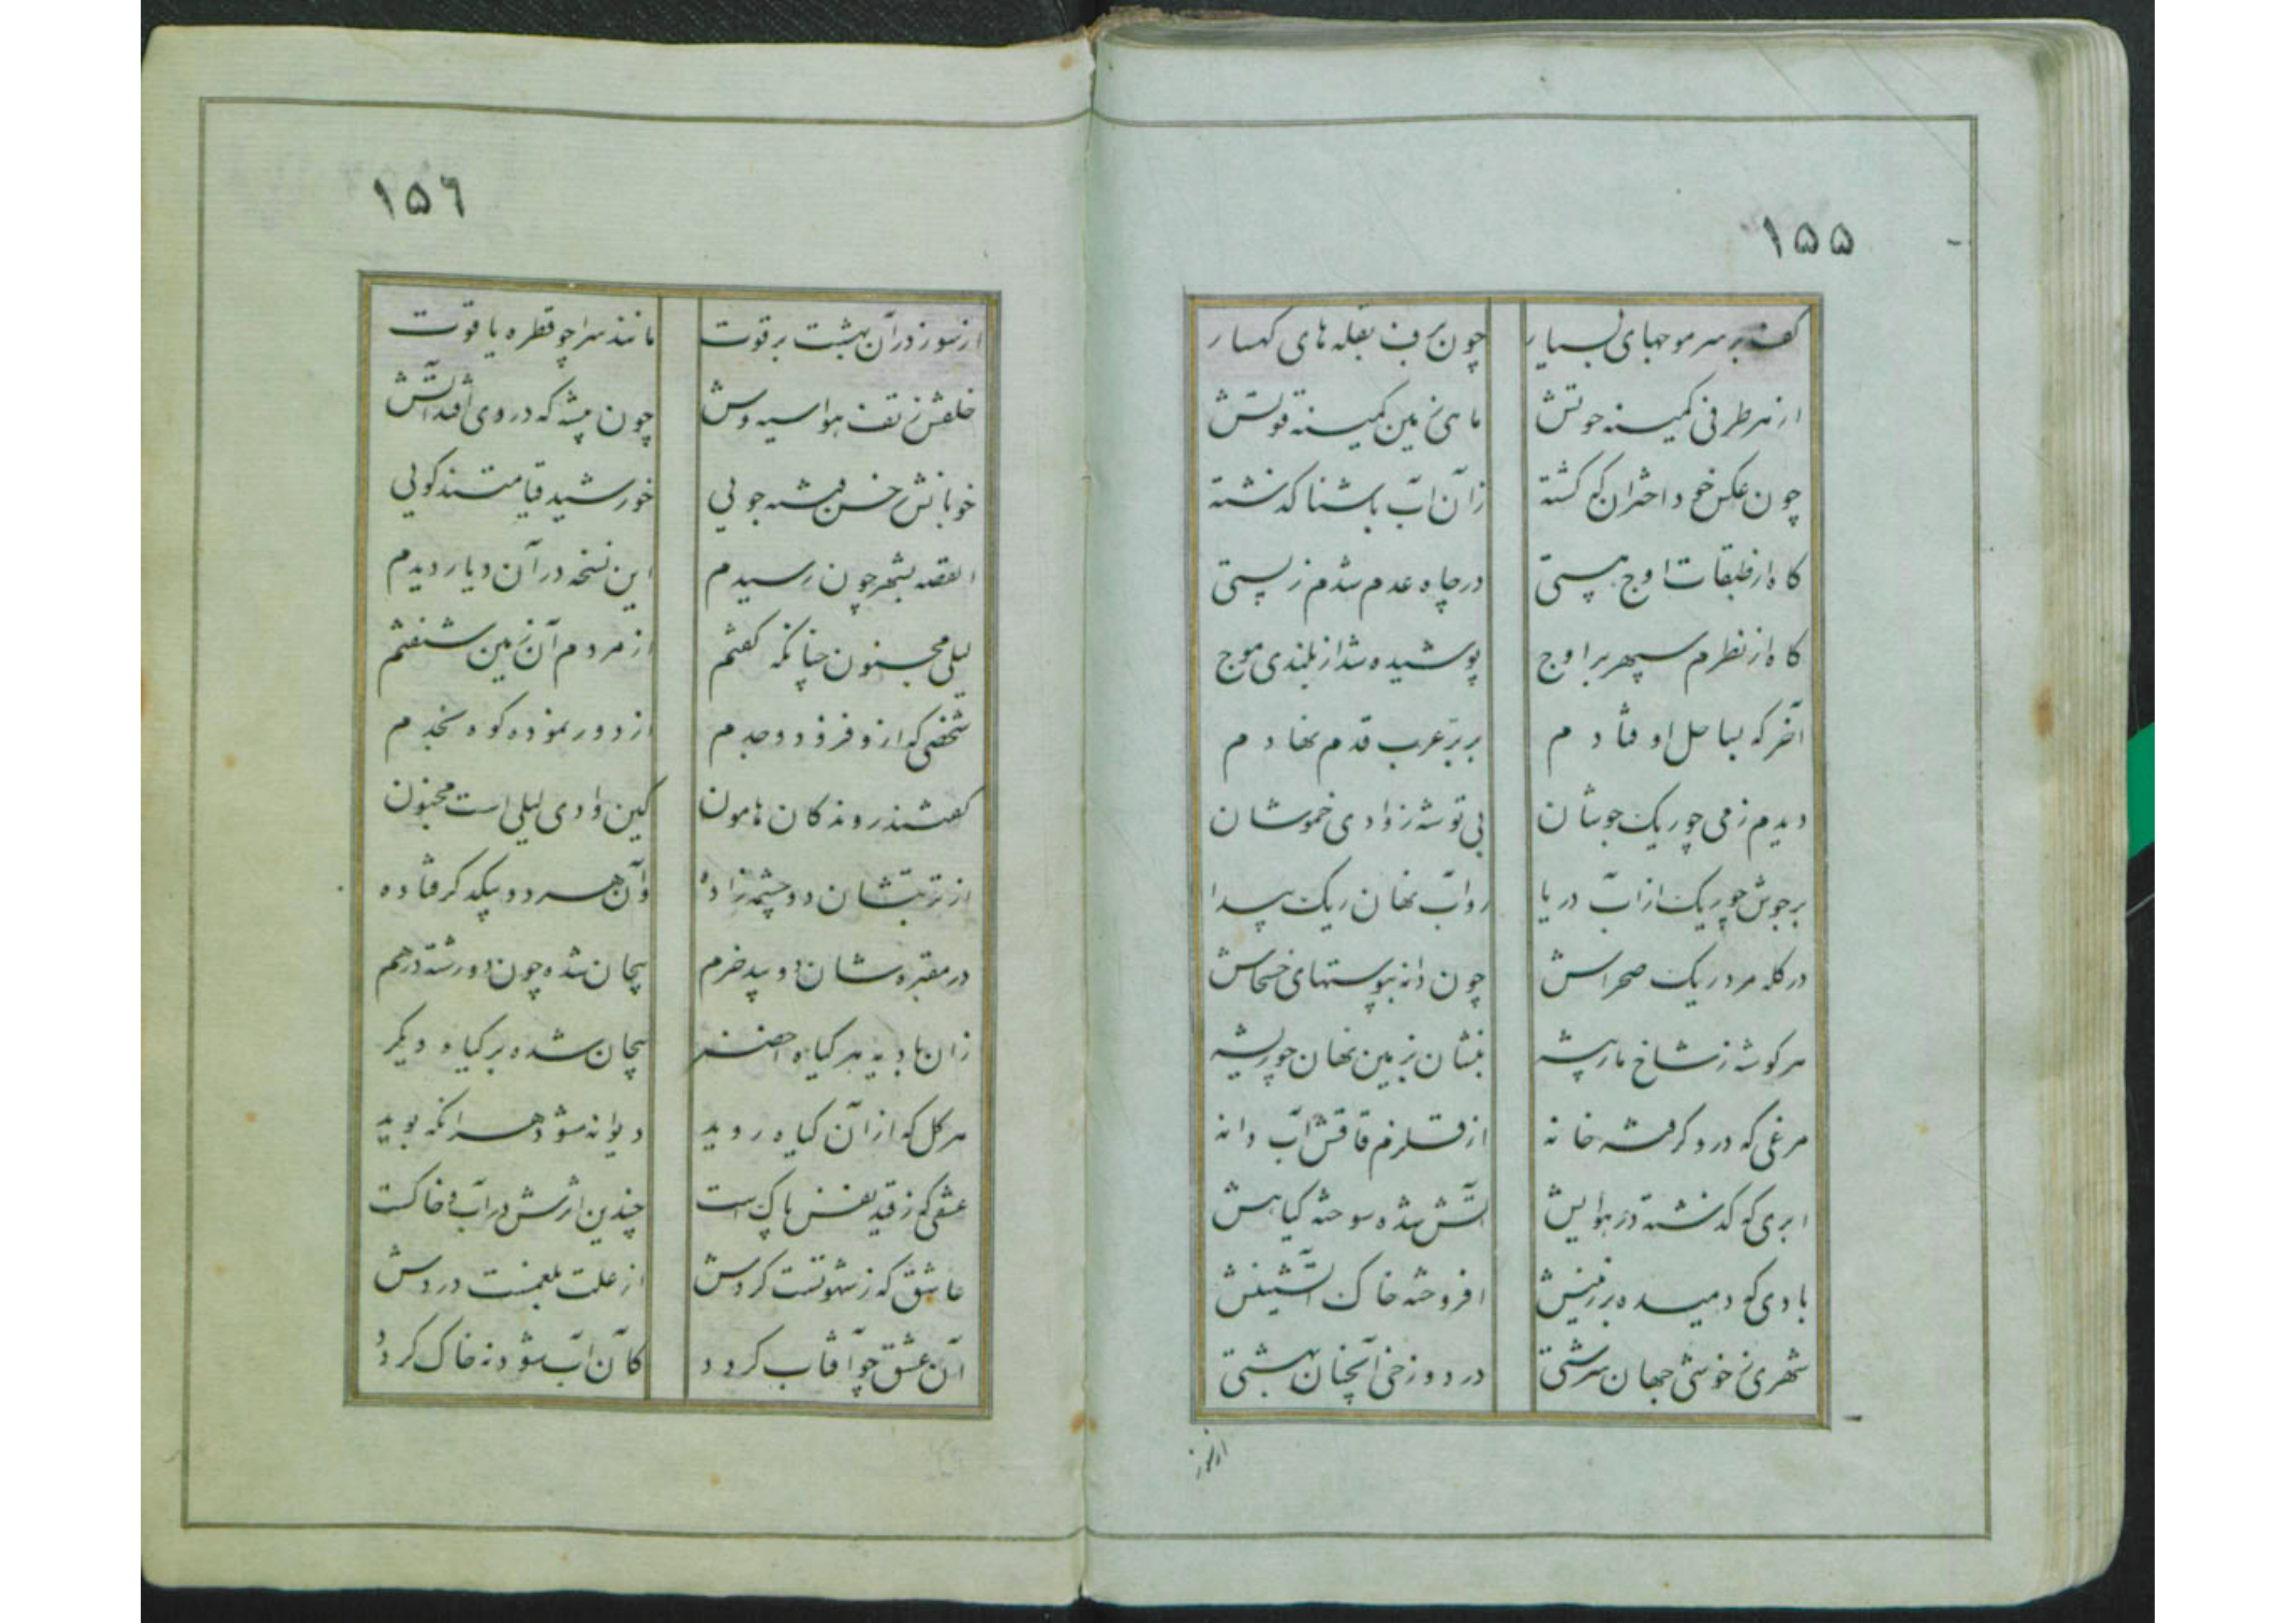 ۱۵۵
کف بر سر موجهای بسیار چون برف بقله های کهسار
از هر طرفی کمینه حوتش ماهی زمین کمینه قوتش
چون عکس خود اختران کم کشته زان آب باشنا کذشته
کاه از طبقات اوج هستی در چاه عدم شدم ز پستی
کاه از نظرم سپهر بر اوج پوشیده شد از بلندی موج
آخر که بساحل اوفتادم بر بر عرب قدم نهادم
دیدم زمی چو ریک جوشان بی توشه ز وادی خموشان
بر جوش چو ریک از آب دریا رو آب نهان ریک پیدا
در کله مرد ریک صحراش چون دانه بپوستهای خشخاش
هر کوشه ز شاخ مار پیشه بزمین نهان چو ریشه
مرغی که درو کرفته خانه از قلزم قافش آب و دانه
ابری که کذشته در هوایش آتش شده سوخته کیاهش
بادی که دمیده بر زمینش افروخته خاک آتشینش
شهری ز خوشی جهان سرشتی در دوزخی آنچنان بهشتی
از سوز
۱۵۶
از سوز در آن بهشت بر قوت مانند سراچو قطره یاقوت
خلقش ز تف هوا سیه وش چون پشه که در وی افتد آتش
خوبانش حسن فتنه جویی خورشید قیامتند کویی
القصه بشهر چون رسیدم این نسخه در آن دیار دیدم
لیلی مجنون چنانکه کفتم از مردم آن زمین شنفتم
شخصی که ازو فزود وجدم از دور نموده کوه نجدم
کفتند روندکان هامون کین وادی لیلی است مجنون
از تربتشان دو چشمه زاده وان هر دو بیکدکر فتاده
در مقبره شان دو بید خرم پیچان شده چون دو رشته در هم
زان بادیه هر کیاه اخضر پیچان شده بر کیاه دیکر
هر کل که از آن کیاه روید دیوانه شود هر انکه بوید
عشقی که ز قید نفس پاک است چندین اثرش در آب و خاکست
عاشق که ز شهوتست کردش از علت بلغمست دردش
آن عشق چو آفتاب کردد کان آب شود نه خاک کردد